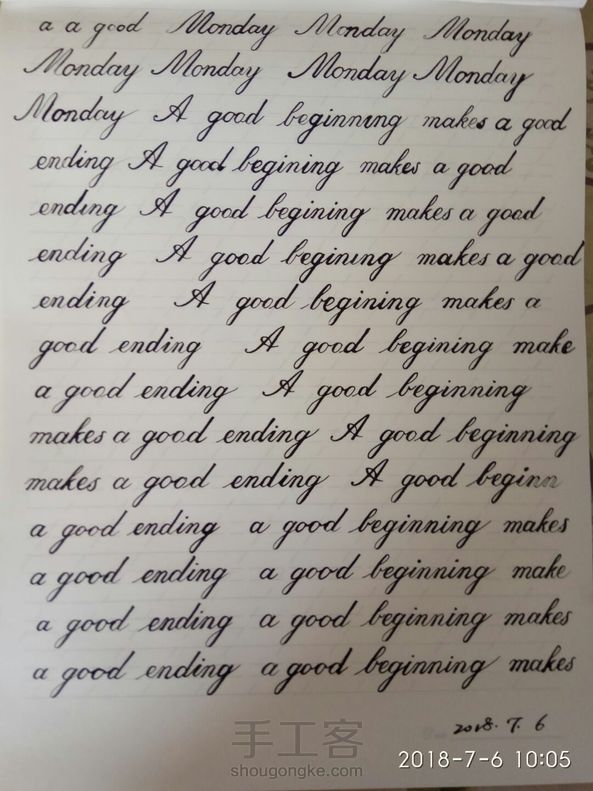 a a good Monday Monday Monday
Monday Monday Monday Monday
Monday A good beginning makes a good
ending A good begining makes a good
ending A good begining makes a good
ending A good begining makes a good
ending A good begining makes a
good ending A good begining make
a good ending A good beginning
makes a good ending A good beginning
makes a good ending A good beginn
a good ending a good beginning makes
a good ending a good beginning make
a good ending a good beginning makes
a good ending a good beginning makes
2018.7.6
手工客
shougongke.com
2018-7-6 10:05